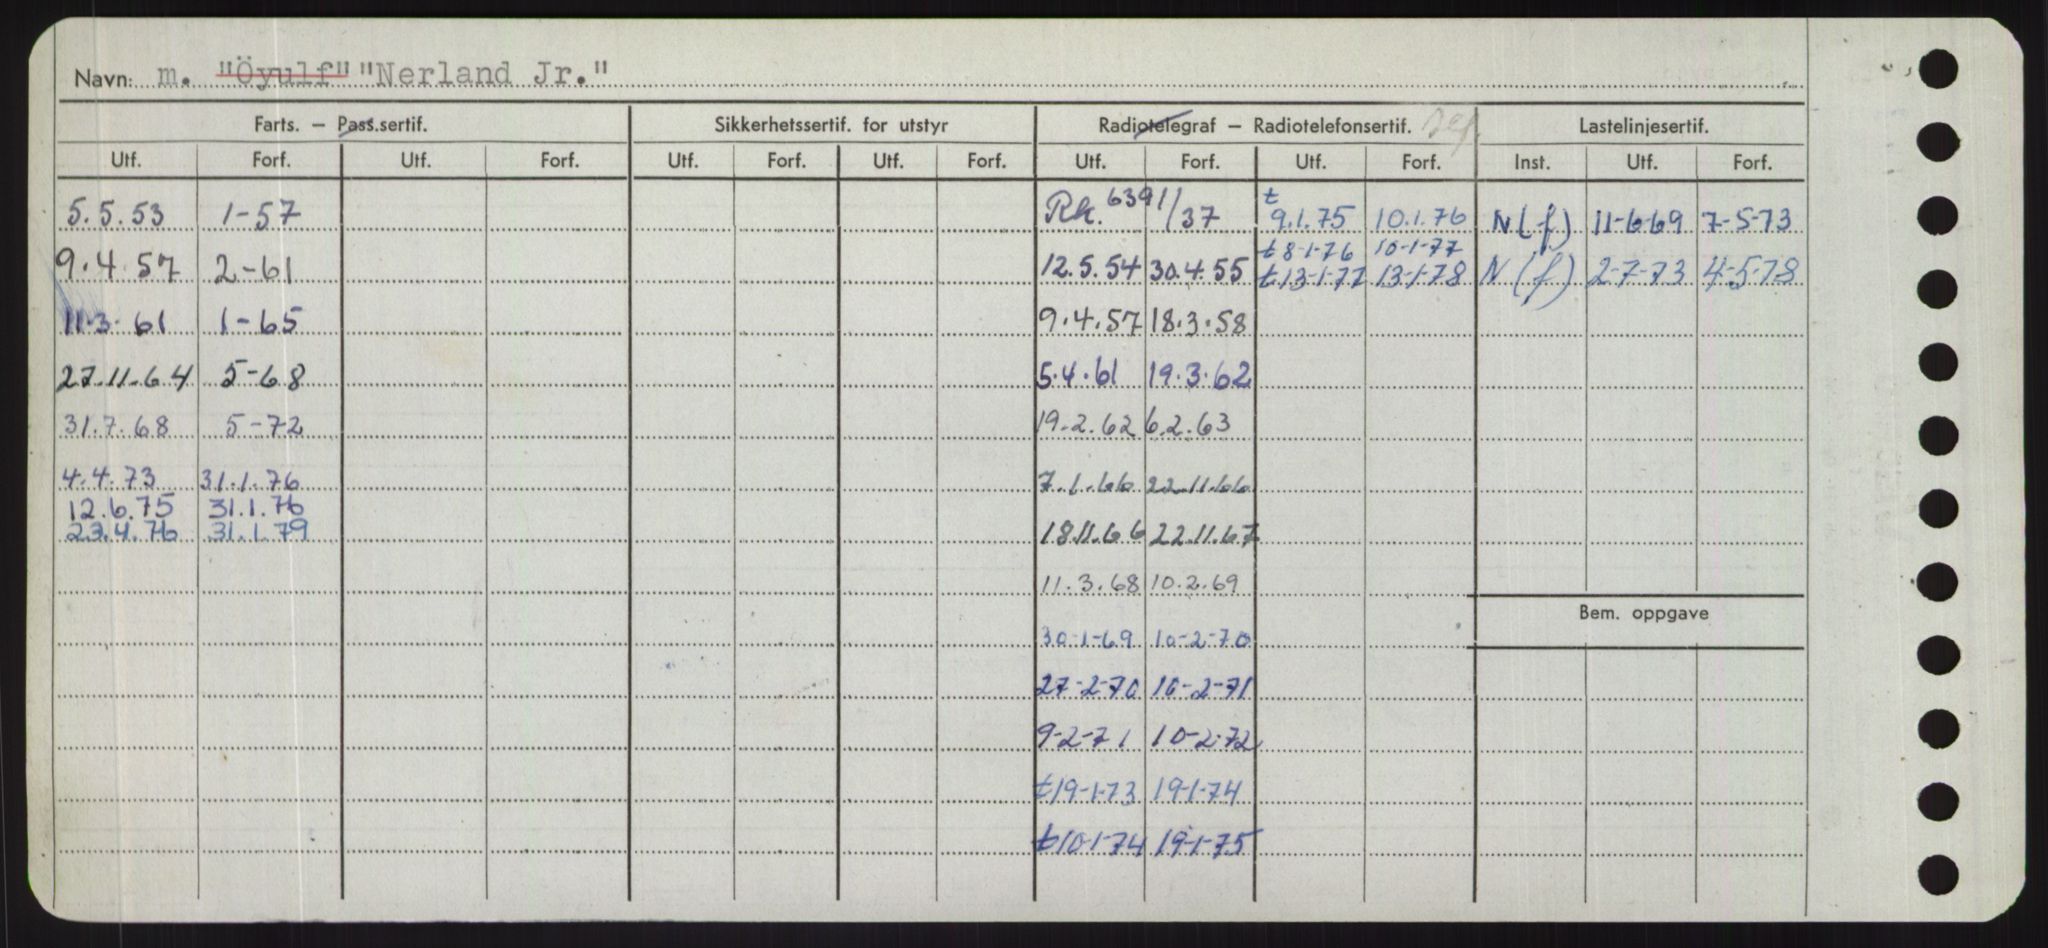 Navn: m. "Öyulf" "Nerland Jr."
Farts. – Pass.sertif. Sikkerhetssertif. for utstyr Radiotelegraf – Radiotelefonsertif. Lastelinjesertif.
Utf. Forf. Utf. Forf. Utf. Forf. Utf. Forf. Utf. Forf. Utf. Forf. Inst. Utf. Forf.
5.5.53 1-57 Rk. 6391/37 t 9.1.75 10.1.76 N(f) 11-6-69 7-5-73
t 8-1-76 10-1-77
9.4.57 2-61 12.5.54 30.4.55 t 13-1-77 13-1-78 N(f) 2-7-73 4-5-78
11.3.61 1-65 9.4.57 18.3.58
27.11.64 5-68 5.4.61 19.3.62
31.7.68 5-72 19.2.62 6.2.63
4.4.73 31.1.76 7.1.66 22.11.66
12.6.75 31.1.76
23.4.76 31.1.79 18.11.66 22.11.67
11.3.68 10.2.69
Bem. oppgave
30-1-69 10-2-70
27-2-70 10-2-71
9-2-71 10-2-72
t 19-1-73 19-1-74
t 10-1-74 19-1-75